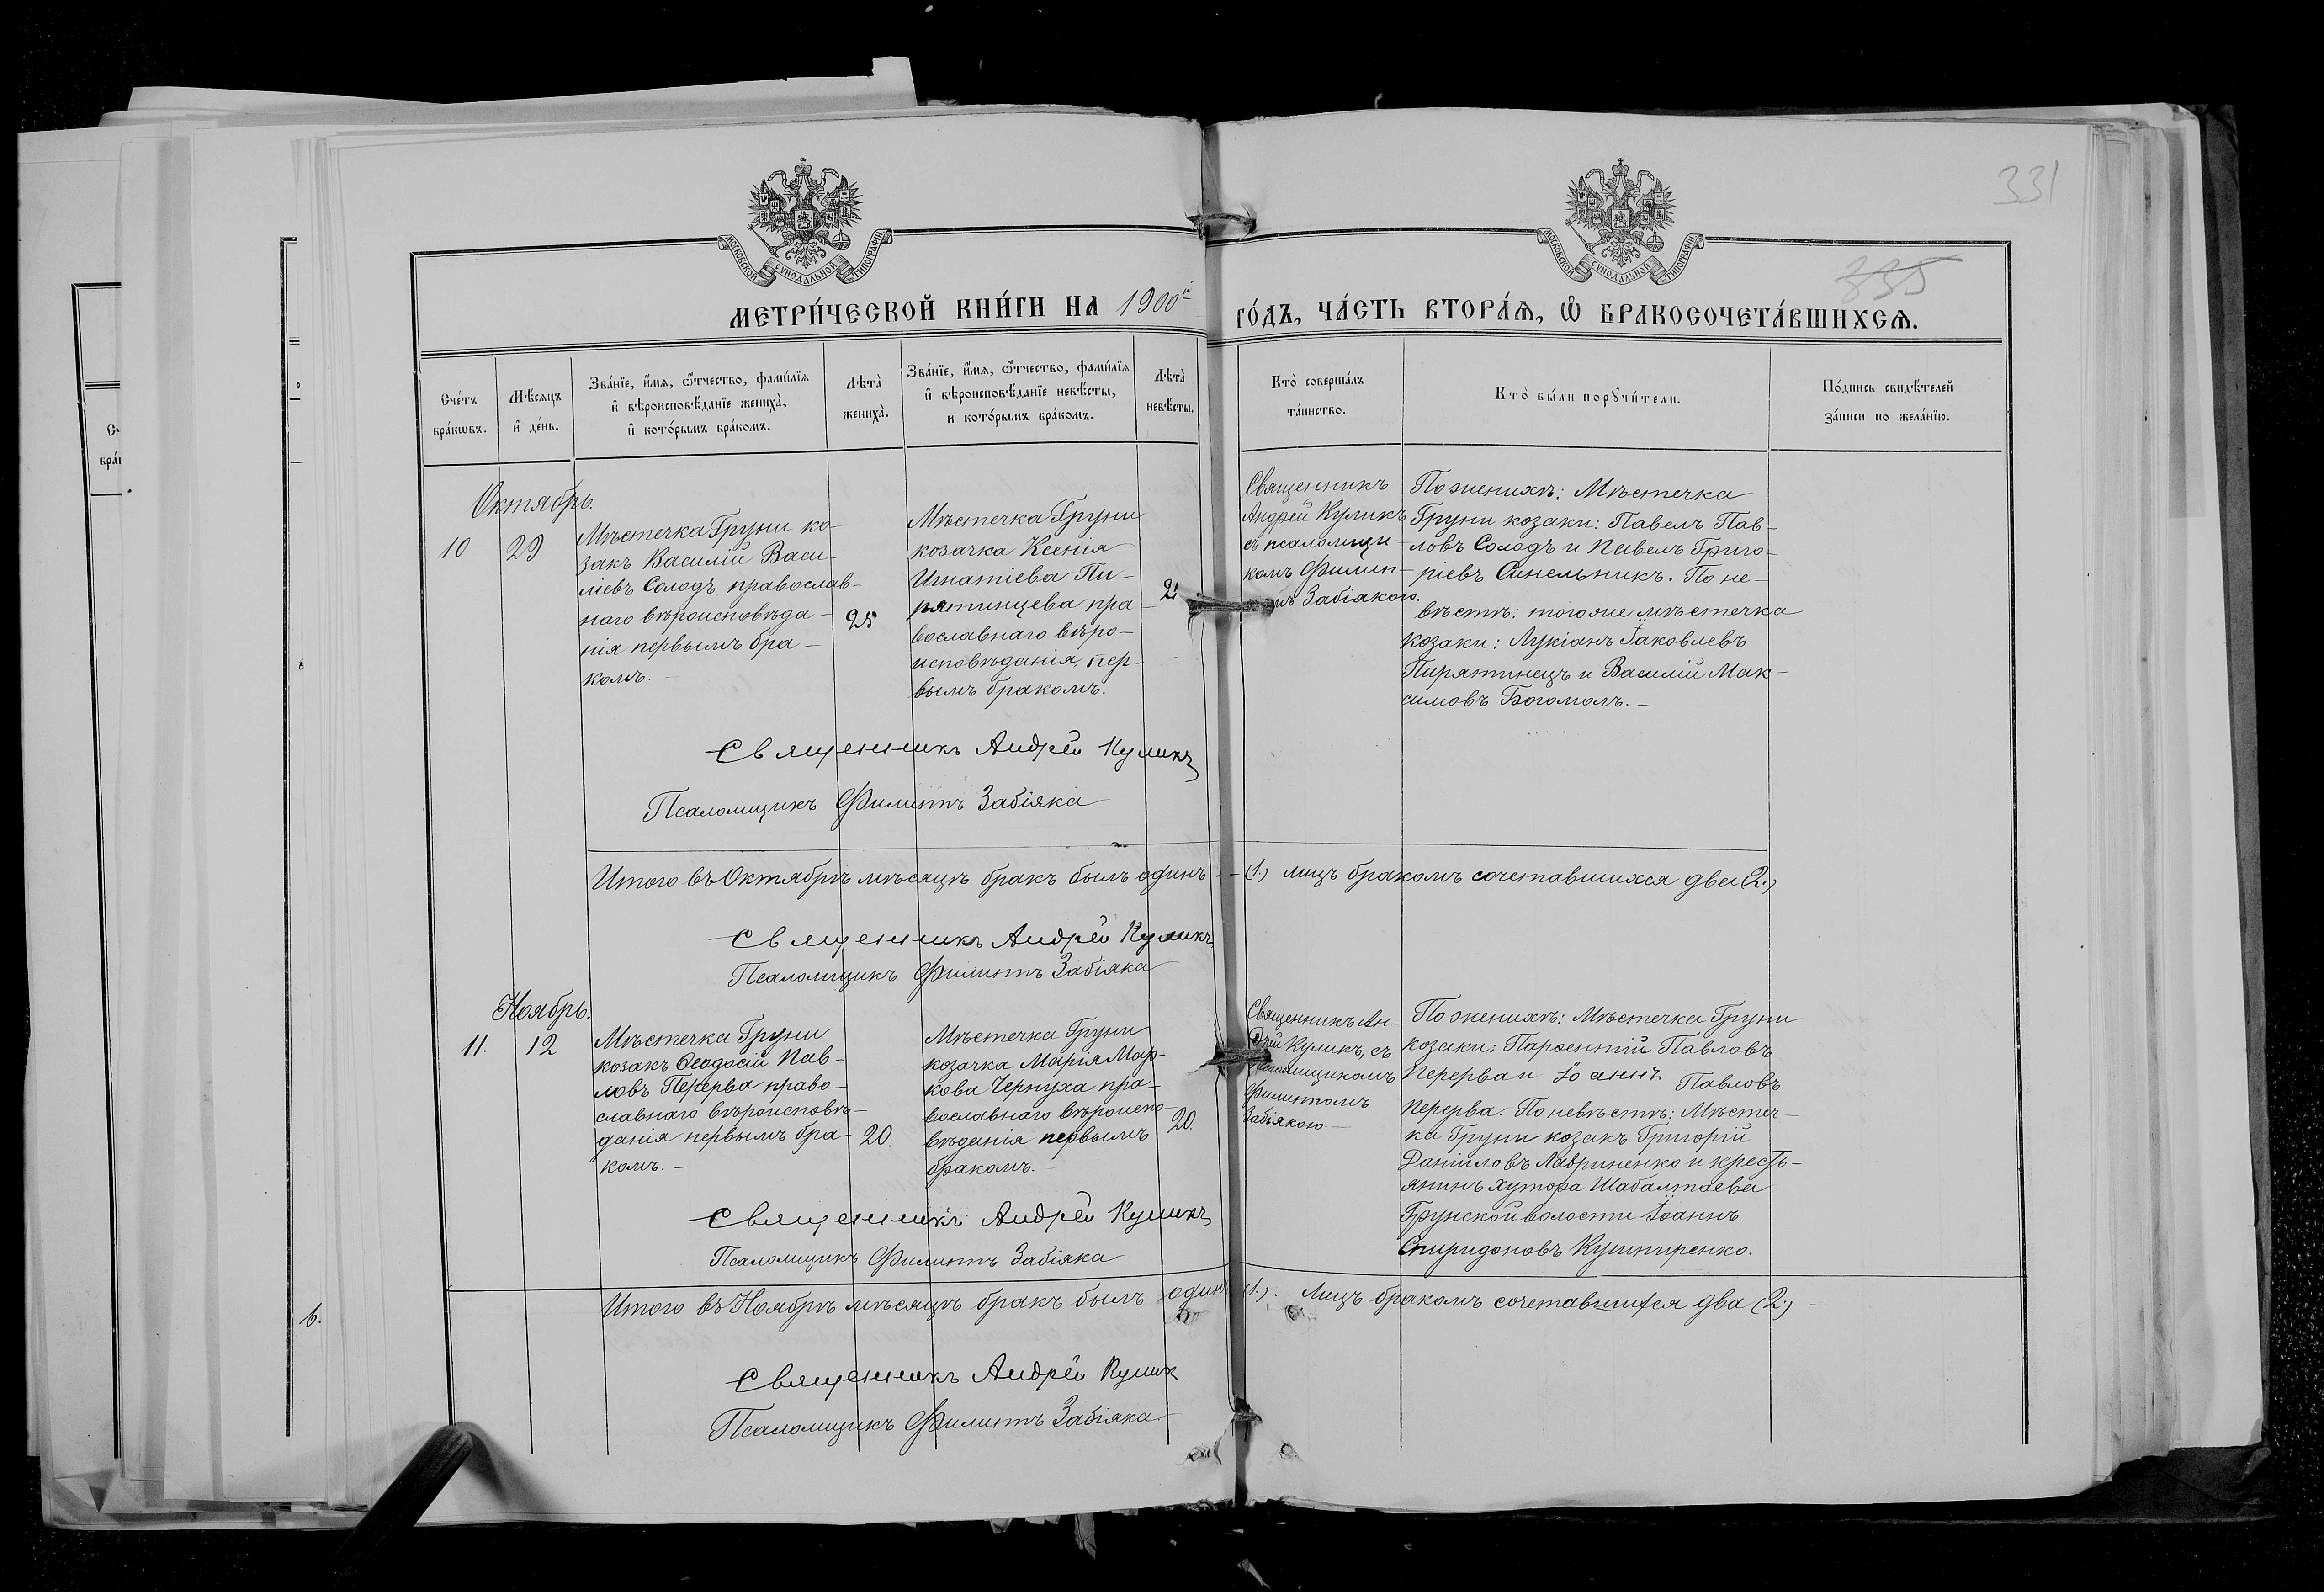 331
335
МОСКОВСКОЙ СУНОДАЛЬНОЙ ТИПОГРАФІИ
МОСКОВСКОЙ СУНОДАЛЬНОЙ ТИПОГРАФІИ
МЕТРИ́ЧЕСКОЙ КНИ́ГИ НА 1900й ГО́ДЪ, ЧА́СТЬ ВТОРА́Ѧ, Ѽ БРАКОСОЧЕТА́ВШИХСѦ.
Сче́тъ
бра́кѡвъ.
Мѣ́сѧцъ
и҆ де́нь.
Зва́нїе, и҆́мѧ, ѻ҆́тчество, фамѵ́лїѧ
и҆ вѣроисповѣ́данїе жениха̀,
и҆ кото́рымъ бра́комъ.
Лѣта̀
жениха̀.
Зва́нїе, и҆́мѧ, ѻ҆́тчество, фамѵ́лїѧ
и҆ вѣроисповѣ́данїе невѣ́сты,
и кото́рымъ бра́комъ.
Лѣта̀
невѣ́сты.
Кто̀ соверша́лъ
та́инство.
Кто̀ бы́ли порꙋчи́тели.
По́дпись свидѣ́телей
за́писи по жела́нїю.
Октябрь.
10
29
Мѣстечка Груни ко-
закъ Василій Васи-
ліевъ Солодъ православ-
наго вѣроисповѣда-
нія первымъ бра-
комъ.-
25
Мѣстечка Груни
козачка Ксенія
Игнатіева Пи-
рятинцева пра-
вославнаго вѣро-
исповѣданія, пер-
вымъ бракомъ.
21
Священникъ
Андрей Куликъ
съ псаломщи-
комъ Филип-
омъ Забіякою.
По женихѣ: Мѣстечка
Груни козаки: Павелъ Пав-
ловъ Солодъ и Павелъ Григо-
ріевъ Синельникъ. По не-
вѣстѣ: тогоже мѣстечка
козаки: Лукіанъ Іаковлевъ
Пирятинецъ и Василій Мак-
симовъ Богомолъ.-
Священникъ Андрей Куликъ
Псаломщикъ Филиппъ Забіяка
Итого въ Октябрѣ мѣсяцѣ бракъ былъ одинъ - (1.) лицъ бракомъ сочетавшихся два (2.)
Священникъ Андрей Куликъ
Псаломщикъ Филиппъ Забіяка
Ноябрь.
11.
12
Мѣстечка Груни
козакъ Ѳеодосій Пав-
ловъ Перерва право-
славнаго вѣроисповѣ-
данія первымъ бра-
комъ.-
20.
Мѣстечка Груни
козачка Марія Мар-
кова Чернуха пра-
вославнаго вѣроиспо-
вѣданія первымъ
бракомъ.-
20.
Священникъ Ан-
дрей Куликъ, съ
псаломщикомъ
Филиппомъ
Забіякою.-
По женихѣ: Мѣстечка Груни
козаки: Парѳентій Павловъ
Перерва и Іоаннъ Павловъ
Перерва. По невѣстѣ: Мѣстеч-
ка Груни козакъ Григорій
Даніиловъ Лавриненко и кресть-
янинъ хутора Шабалтаева
Грунской волости Іоаннъ
Спиридоновъ Кушниренко.
Священникъ Андрей Куликъ
Псаломщикъ Филиппъ Забіяка
Итого въ Ноябрѣ мѣсяцѣ бракъ былъ одинъ (1.). Лицъ бракомъ сочетавшихся два (2.) -
Священникъ Андрей Куликъ
Псаломщикъ Филиппъ Забіяка